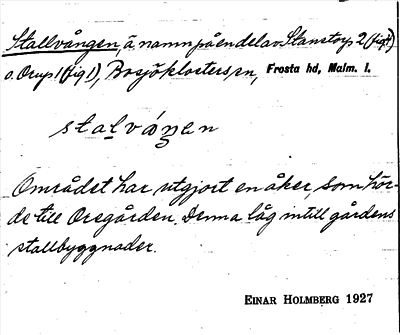 Stallvången, ä. namn på en del av Stanstorp 2 (fig 1)
o. Orup 1 (fig 1), Bosjöklosters sn, Frosta hd, Malm. l.
stalváŋen
Området har utgjort en åker, som hör-
de till Oregården. Denna låg intill gårdens
stallbyggnader.
EINAR HOLMBERG 1927